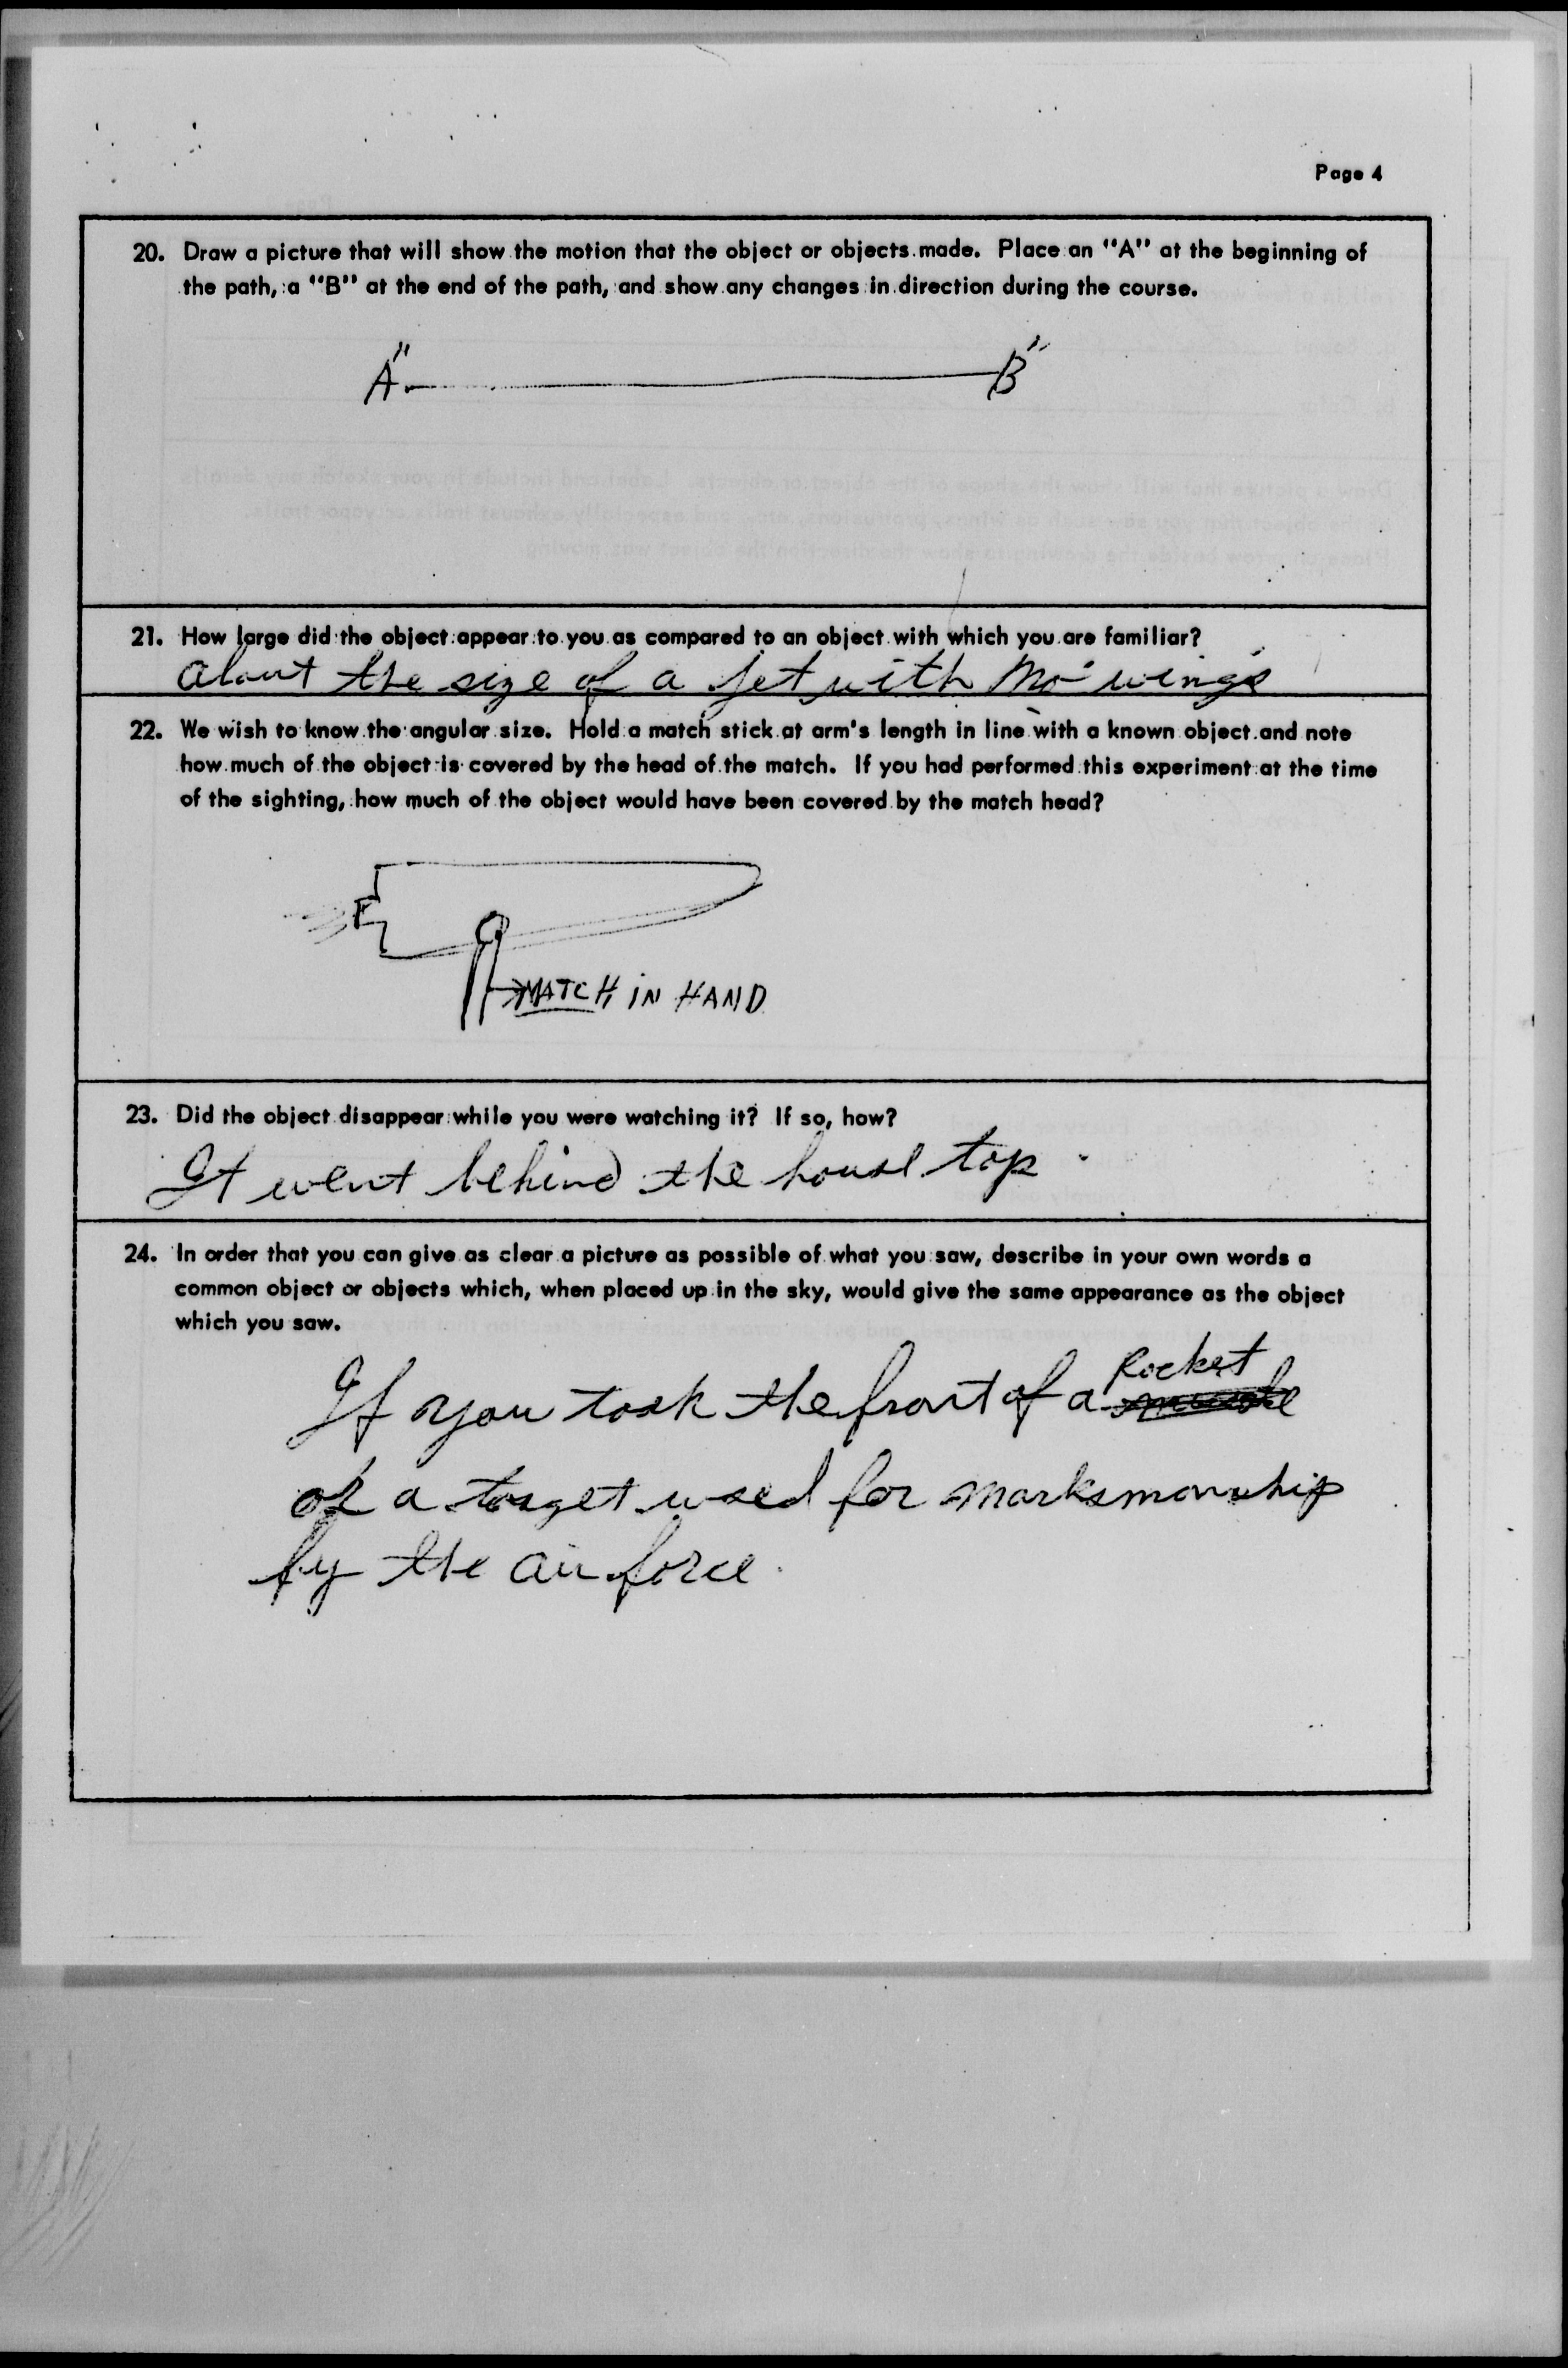 Page 4
20. Draw a picture that will show the motion that the object or objects made. Place an "A" at the beginning of
the path, a "B" at the end of the path, and show any changes in direction during the course.
"A" "B"
21. How large did the object appear to you as compared to an object with which you are familiar?
about the size of a jet with "no" wings
22. We wish to know the angular size. Hold a match stick at arm's length in line with a known object and note
how much of the object is covered by the head of the match. If you had performed this experiment at the time
of the sighting, how much of the object would have been covered by the match head?
MATCH IN HAND
23. Did the object disappear while you were watching it? If so, how?
It went behind the house top.
24. In order that you can give as clear a picture as possible of what you saw, describe in your own words a
common object or objects which, when placed up in the sky, would give the same appearance as the object
which you saw.
Rocket
If you took the front of a
or a target used for marksmanship
by the air force.